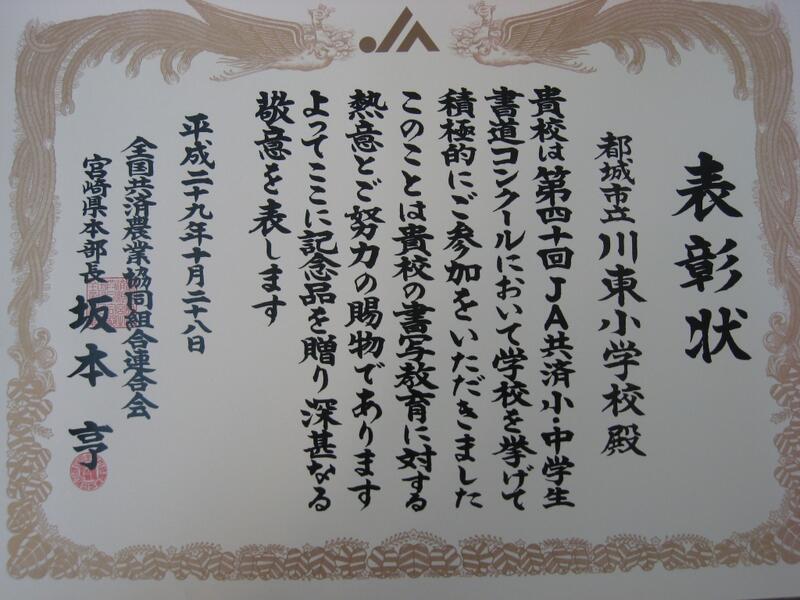 JA
表彰状
都城市立川東小学校殿
貴校は第四十回JA共済小・中学生
書道コンクールにおいて学校を挙げて
積極的にご参加をいただきました
このことは貴校の書写教育に対する
熱意とご努力の賜物であります
よってここに記念品を贈り深甚なる
敬意を表します
平成二十九年十月二十八日
全国共済農業協同組合連合会
宮崎県本部長 坂本亨